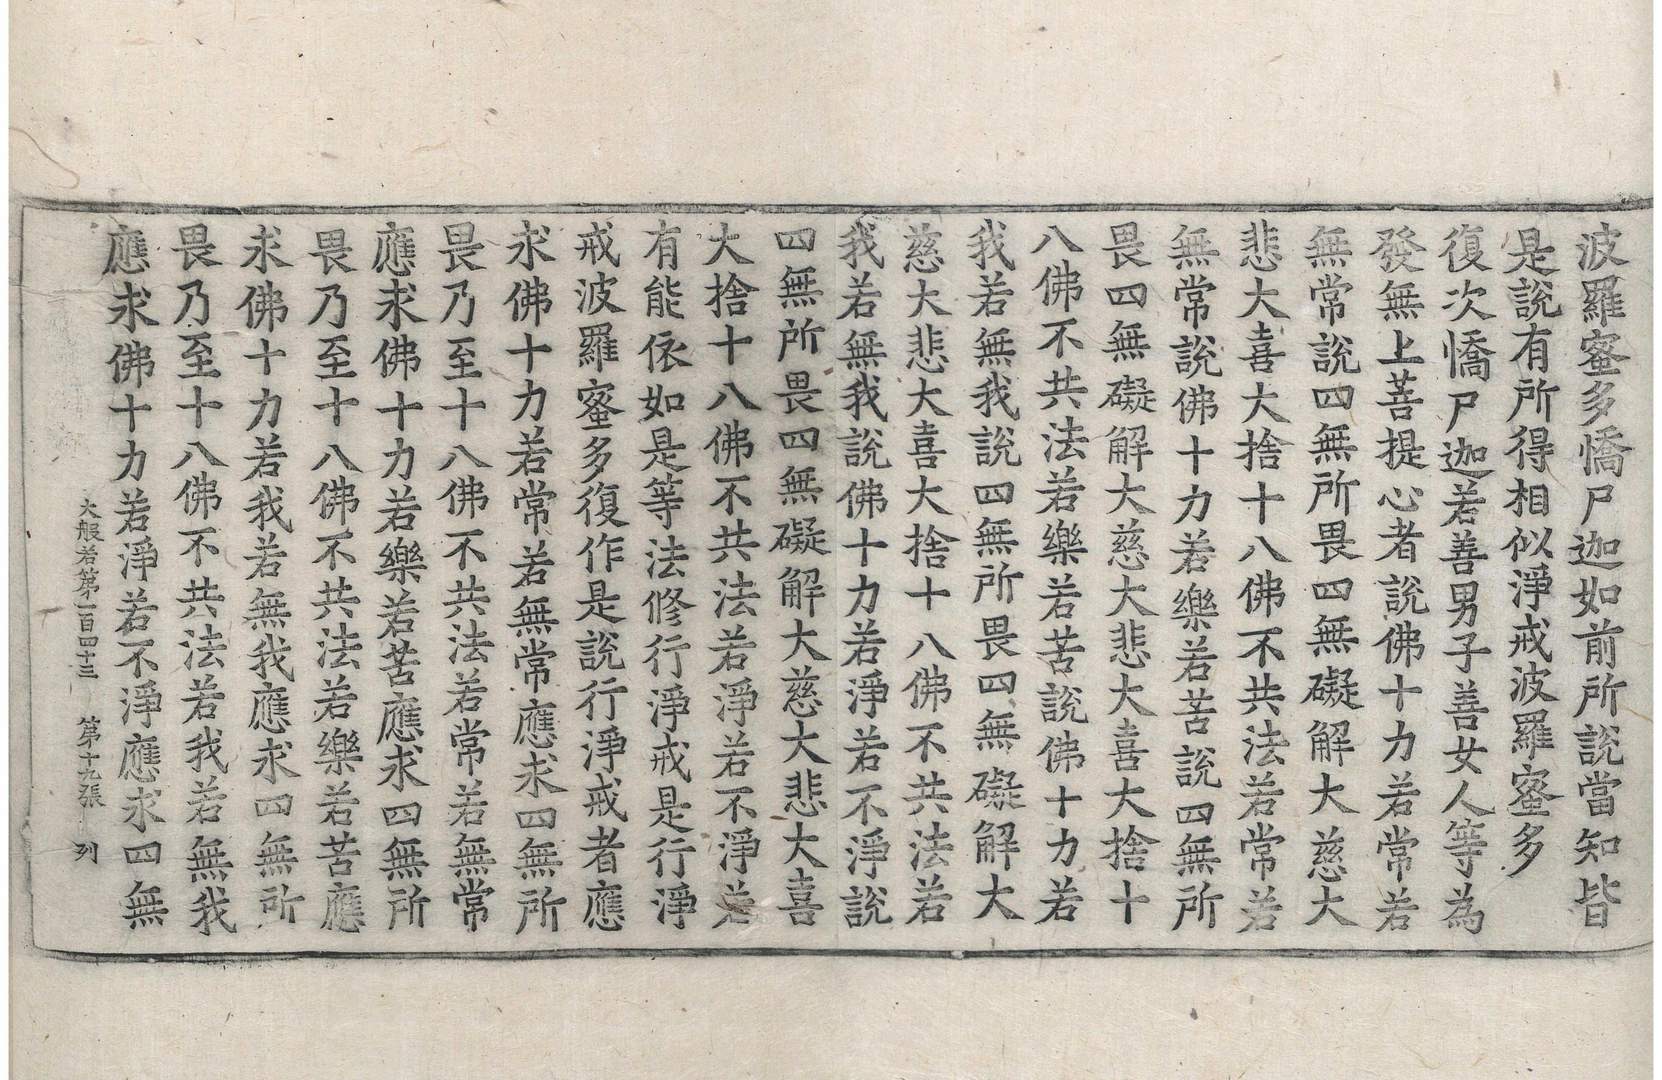 波羅蜜多憍尸迦如前所說當知皆
是說有所得相似淨戒波羅蜜多
復次憍尸迦若善男子善女人等為
發無上菩提心者說佛十力若常若
無常說四無所畏四無礙解大慈大
悲大喜大捨十八佛不共法若常若
無常說佛十力若樂若苦說四無所
畏四無礙解大慈大悲大喜大捨十
八佛不共法若樂若苦說佛十力若
我若無我說四無所畏四無礙解大
慈大悲大喜大捨十八佛不共法若
我若無我說佛十力若淨若不淨說
四無所畏四無礙解大慈大悲大喜
大捨十八佛不共法若淨若不淨若
有能依如是等法修行淨戒是行淨
戒波羅蜜多復作是說行淨戒者應
求佛十力若常若無常應求四無所
畏乃至十八佛不共法若常若無常
應求佛十力若樂若苦應求四無所
畏乃至十八佛不共法若樂若苦應
求佛十力若我若無我應求四無所
畏乃至十八佛不共法若我若無我
應求佛十力若淨若不淨應求四無
大般若第一百四十三 第十九張 列